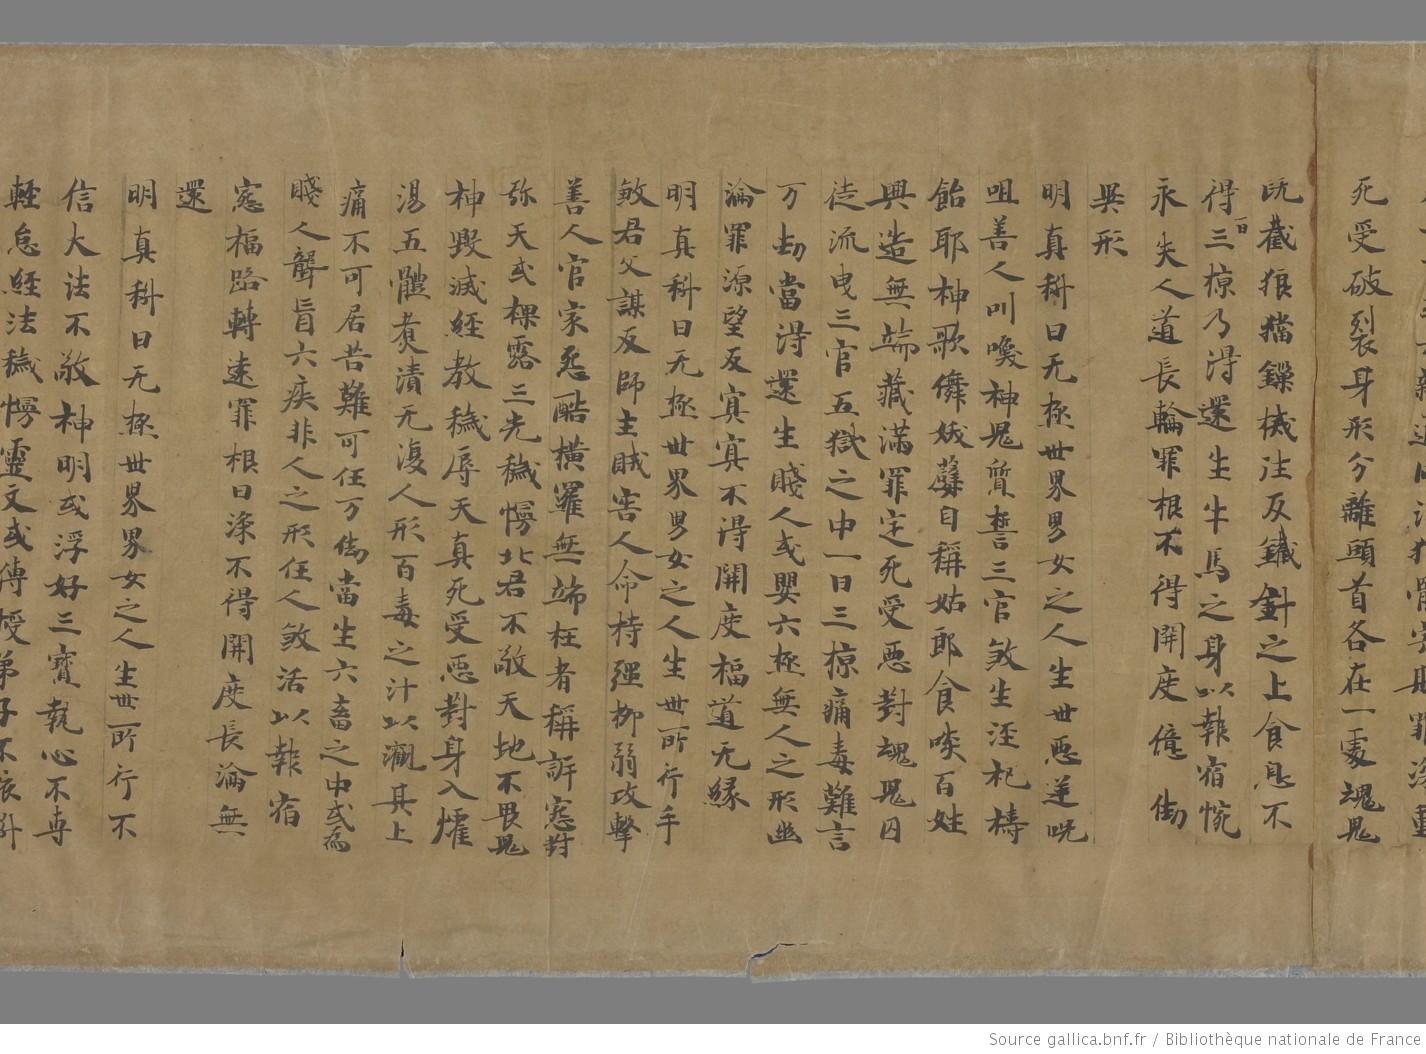 死受破裂身形分離頭首各在一處魂鬼
既截很擋鑊杙注反鐵針之上食息不
得一日三掠乃淂還生牛馬之身以報宿惋
永失人道長輪罪根不得開度億劫
異形
明真科曰无極世界男女之人生世惡逆呪
咀善人叫喚神鬼質誓三官煞生淫祀禱
飴耶神歌儛妖孽自稱姑郎食啖百姓
興造無端藏滿罪定死受惡對魂鬼囚
徒流曳三官五獄之中一日三掠痛毒難言
万劫當淂還生賤人或嬰六極無人之形幽
淪罪源望反冥冥不淂開度福道无緣
明真科曰无極世界男女之人生世所行手
煞君父謀反師主賊害人命持強抑弱攻擊
善人官家惡酷橫羅無端枉者稱訴窓對
弥天或裸露三光穢慢北君不敬天地不畏鬼
神毀滅經教穢辱天真死受惡對身入爟
湯五體煑漬无復人形百毒之汁以灑其上
痛不可居苦難可任万劫當生六畜之中或為
賤人聾盲六疾非人之形任人煞活以報宿
窓福路轉遠罪根日深不得開度長淪無
還
明真科曰无極世界男女之人生世所行不
信大法不敬神明或浮好三寶執心不專
輕怠經法穢慢靈文或傳授弟子不依科